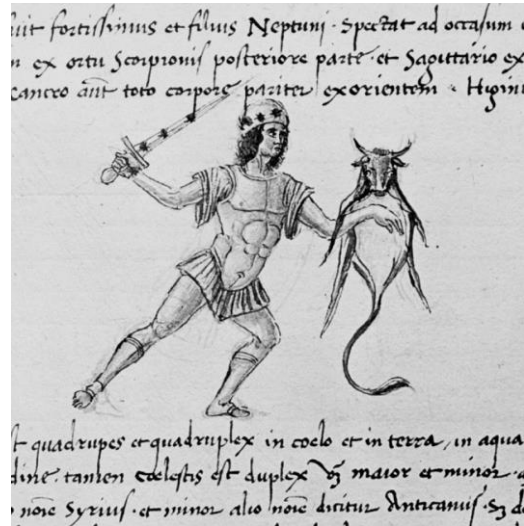 fuit fortissimus et filius Neptuni. Spectat ad occasum
ex ortu Scorpionis posteriore parte et Sagittario
cancro aūt toto corpore pariter exorientem. Higini
quadrupes et quadruplex in coelo et in terra, in aqua
tamen coelestis est duplex maior et minor.
noīe Syrius. et minor alio noīe dicitur Anticanis.